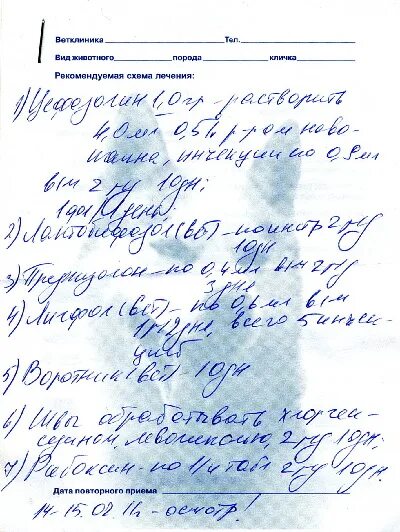 Ветклиника Тел.
Вид животного порода кличка
Рекомендуемая схема лечения:
1) Цефазолин 1,0 гр - растворить
4,0 мл 0,5% р-ром ново-
каина, инъекции по 0,8 мл
в/м 2 р/д 10 дн;
2) (вет) - по 2 р/д
10 дн
3) Преднизолон - по 0,4 мл в/м 2 р/д
3 дня
4) Лигфол (вет) - по 0,6 мл в/м
всего 5 инъек-
ций
5) Воротник (вет) - 10 дн
6) Швы обрабатывать хлоргек-
сидином, левомиколью, 2 р/д 10 дн.
7) Рибоксин - по 1/4 таб 2 р/д 10 дн.
Дата повторного приема
14-15.02 - осмотр!